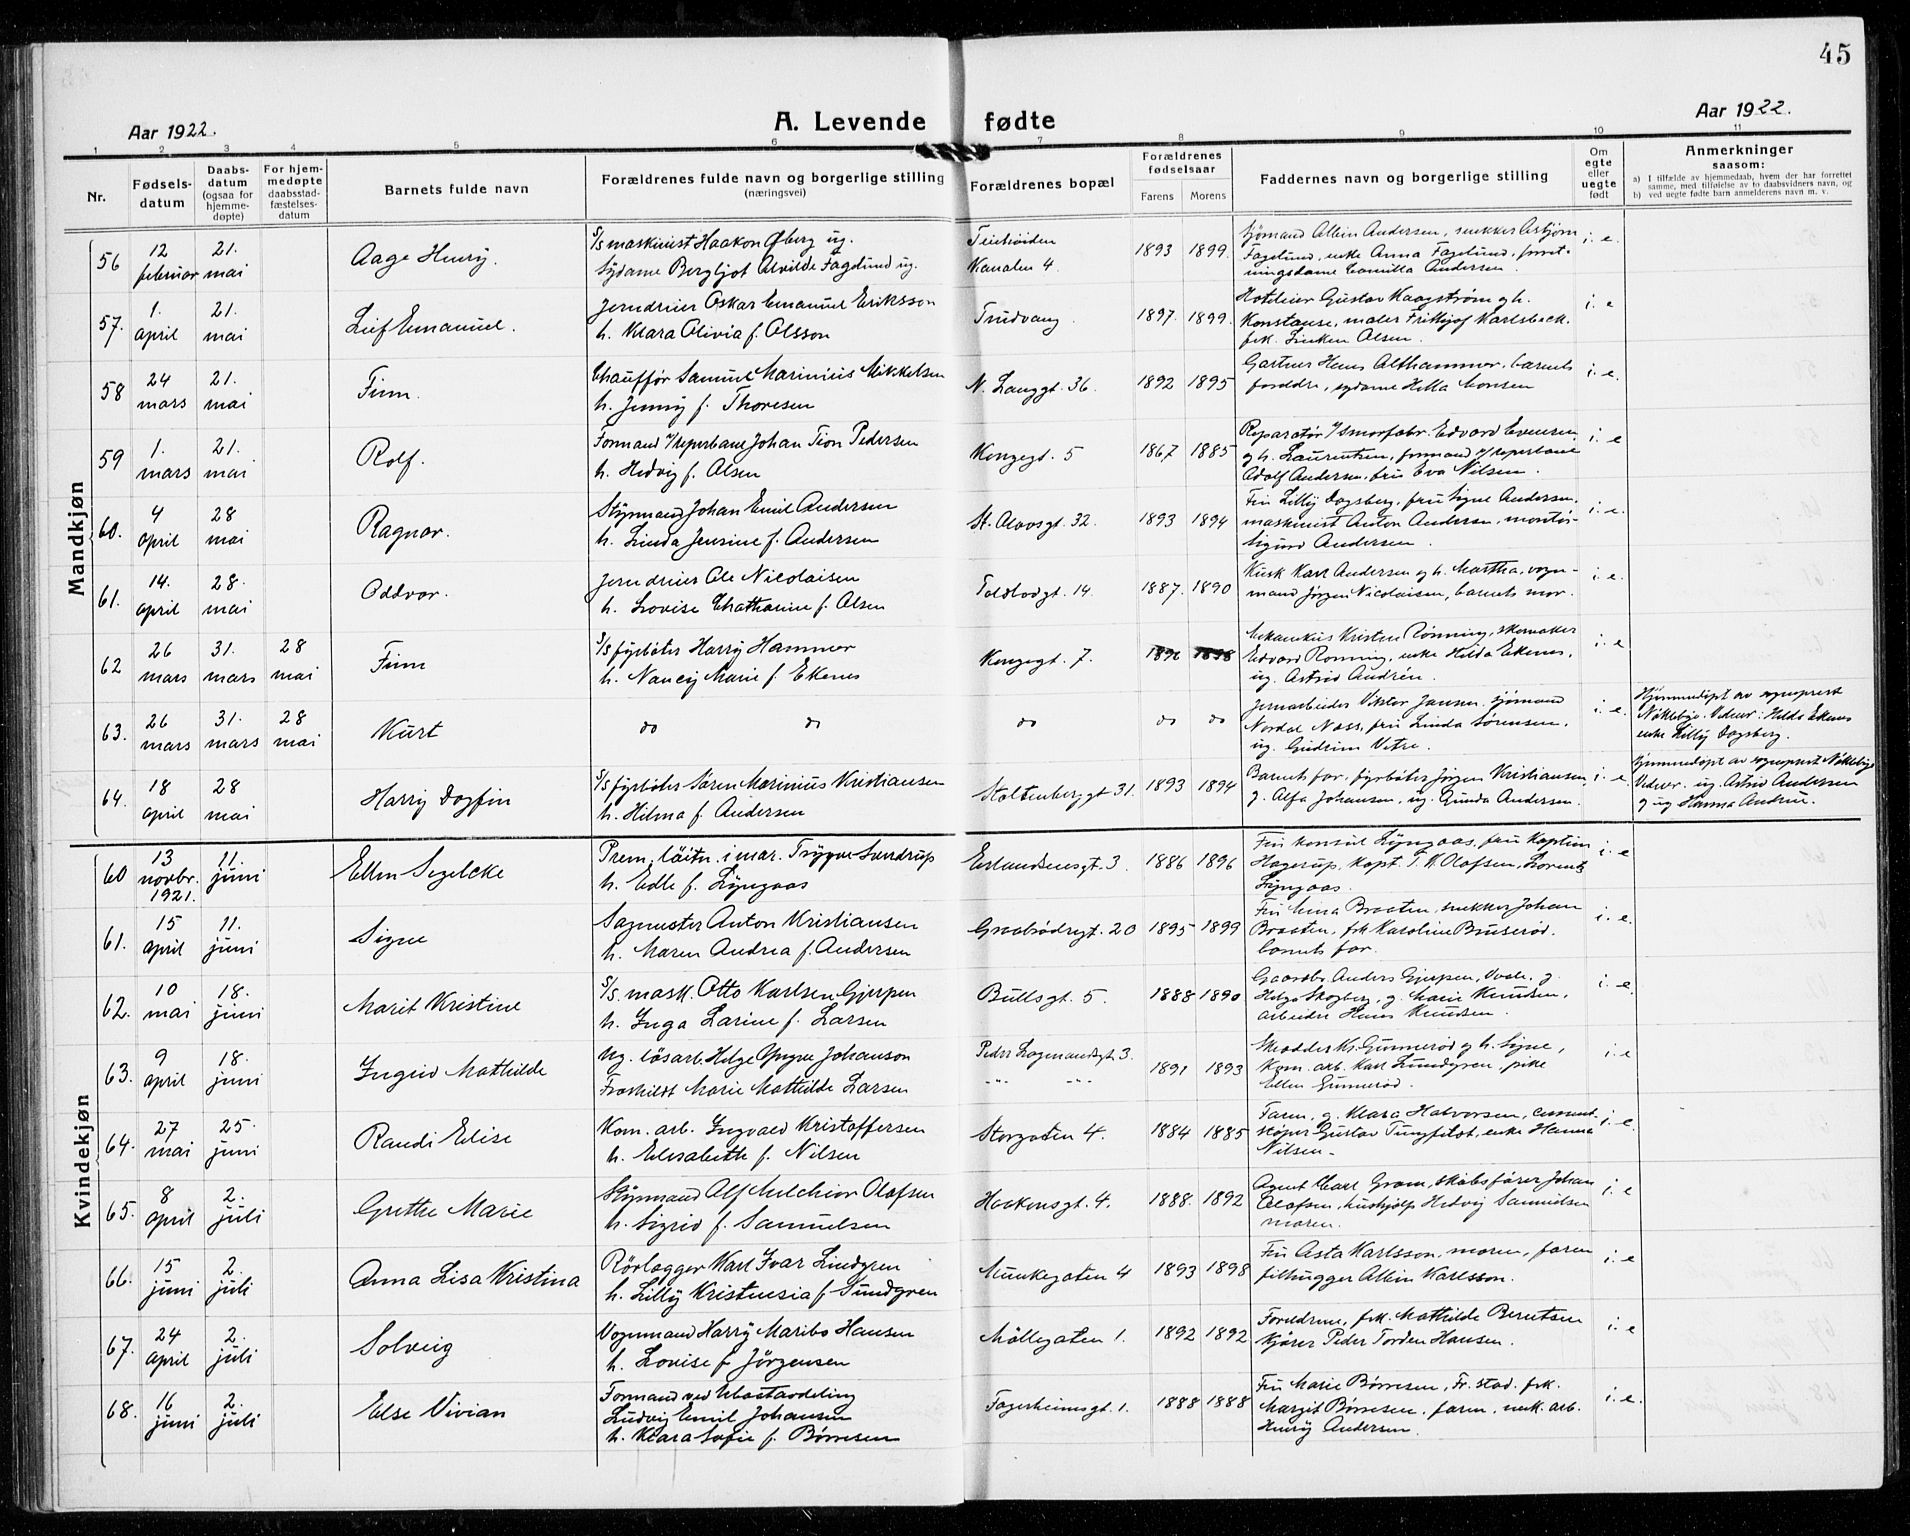 45
Aar 1922.
A. Levende fødte
Aar 1922.
1 2 3 4 5 6 7 8 9 10 11
Nr.
Fødsels-
datum
Daabs-
datum
(ogsaa for
hjemme-
døpte)
For hjem-
medøpte
daabsstad-
fæstelses-
datum
Barnets fulde navn
Forældrenes fulde navn og borgerlige stilling
(næringsvei)
Forældrenes bopæl
Forældrenes
fødselsaar
Farens Morens
Faddernes navn og borgerlige stilling
Om
egte
eller
uegte
født
Anmerkninger
saasom:
a) I tilfælde av hjemmedaab, hvem der har forrettet
samme, med tilføielse av to daabsvidners navn, og
b) ved uegte fødte barn anmelderens navn m. v.
Mandkjøn
56 12 februar 21. mai Aage Henry.
S/S maskinist Haakon Øberg ug.
Sydame Bergljot Alvilde Fagelund ug.
Kanalen 4. 1893 1899
Sjømand Albin Andersen, snekker Asbjørn
Fagelund, enke Anna Fagelund, forret-
ningsdame Camilla Andersen. i. e.
57. 1. april 21. mai Leif Emanuel.
Jerndreier Oskar Emanuel Eriksson
h. Klara Olivia f. Olsson
Trudvang. 1897. 1899.
Hoteleier Gustav Kaagstrøm og h.
Konstanse, maler Frithjof Karlsbeck.
frk. Linken Olsen. i. e
58 24 mars 21. mai Finn.
Chauffør Samuel Marinius Mikkelsen
h. Jenny f. Thoresen
N. Langgt. 36. 1892 1895
Gartner Hans Althammer, barnets
foreldre, sydame Hilla Monsen i. e.
59 1. mars 21. mai Rolf.
Formand v/reperbane Johan Tion Pedersen
h. Hedvig f. Olsen
Kongegt. 5 1867 1885
Reparatør v/smørfabr. Edvard Evensen
og h. Laurentsen, formand v/reperbane
Adolf Andersen, fru Eva Nilsen. i. e
60. 4 april 28 mai Ragnar.
Styrmand Johan Emil Andersen
h. Linda Jensine f. Andersen
St. Olavsgt. 32. 1893 1894
Fru Lilly Dagsberg, fru Signe Andersen.
maskinist Anton Andersen, montør
Sigurd Andersen. i. e.
61. 14. april 28. mai Oddvar.
Jerndreier Ole Nicolaisen
h. Lovise Chatharine f. Olsen
Toldbodgt. 14. 1887. 1890
Kusk Karl Andersen og h. Martha, vogn-
mand Jørgen Nicolaisen, barnets mor. i. e.
62 26 mars 31. mars 28 mai Finn
S/S fyrbøter Harry Hammer
h. Nancy Marie f. Ekenes
Kongegt. 7. 1896 1898
Mekanikus Kristen Rønning, skomaker
Edvard Rønning, enke Hilda Ekenes,
ug. Astrid Andrén. i. e.
63. 26 mars 31. mars 28 mai Kurt
do do do do do
Jernarbeider Viktor Jansen. Sjømand
Nordal Næss, fru Linda Sørensen,
ug. Gudrun Vetre. i. e.
Hjemmedøpt av sogneprest
Nøklebye. Vidner: Hilda Ekenes
enke Lilly Dagsberg.
64. 18 april 28 mai Harry Dagfin
S/S fyrbøter Søren Marinius Kristiansen
h. Hilma f. Andersen
Stoltenberggt 31. 1893 1894
Barnets far, fyrbøter Jørgen Kristiansen,
g. Alfa Johansen, ug. Gunda Andersen. i. e
Hjemmedøpt av sogneprest Nøklebye
Vidner. ug Astrid Andersen
og ug Hanna Andrén.
Kvindekjøn
60 13 novbr. 1921. 11. juni Ellen Segelcke
Prem. löitn. i mar. Trygve Sandrup
h. Edle f. Lyngaas
Erlandsensgt. 3. 1886 1896
Fru konsul Lyngaas, fru Kaptein
Hagerup, kapt. T. K. Olafsen, Lorentz
Lyngaas. i. e
61. 15 april 11. juni Signe
Sagmester Anton Kristiansen
h. Maren Andrea f. Andersen
Graabrødregt. 20 1895 1899
Fru Mina Braaten, snekker Johan
Braaten, frk Karoline Bruserød.
barnets far. i. e.
62. 10 mai 18. juni Marit Kristine
S/S. mask. Otto Karlsen Gjerpen
h. Inga Larine f. Larsen
Bullsgt. 5. 1888 1890
Gaardbr. Anders Gjerpen, Vaale, g.
Helga Skogberg, g. Marie Knudsen,
arbeider Hans Knudsen. i. e.
63. 9 april 18. juni Ingrid Mathilde
Ug. løsarb. Helge Yngve Johanson
Froshildt Marie Mathilde Larsen
Peder Lagmandsgt. 3. 1891 1893
Skrædder Kr. Gunnerød og h. Signe,
Kom. arb. Karl Lundgren, pike
Ellen Gunnerød. i. e
64. 27 mai 25. juni Randi Elise
Kom. arb. Ingvald Kristoffersen
h. Elisabeth f. Nilsen
Storgaten 4. 1884 1885
Faren, g. Klara Halvorsen, cement-
støper Gustav Tungfilot, enke Hanna
Nilsen. i. e.
65. 8 april 2. juli Grethe Marie
Styrmand Alf Melchior Olafsen
h. Sigrid f. Samuelsen
Haakonsgt. 4. 1888. 1892
Agent Carl Gram, skibsfører Johan
Olafsen, hushjelp Hedvig Samuelsen
moren. i. e
66. 15 juni 2. juli Anna Lisa Kristina
Rörlægger Karl Ivar Lindgren
h. Lilly Kristensia f Sundgren
Munkegaten 4 1893 1898
Fru Asta Karlsson, moren, faren
filhugger Albin Karlsson. i. e
67. 24 april 2. juli Solveig
Vognmand Harry Maribo Hansen
h. Lovise f Jörgensen
Möllegaten 1. 1892 1892
Foreldrene, frk. Mathilde Berntsen
kjører Peder Torden Hansen. i. e
68. 16 juni 2. juli Else Vivian
Formand ved
Ludvig Emil Johansen
h. Klara Sofie f. Børresen
Fagerheimsgt. 1. 1888 1888
Fru Marie Børresen, Fr. stad. frk.
Margit Børresen. faren, mek. arb.
Henry Andersen. i. e.